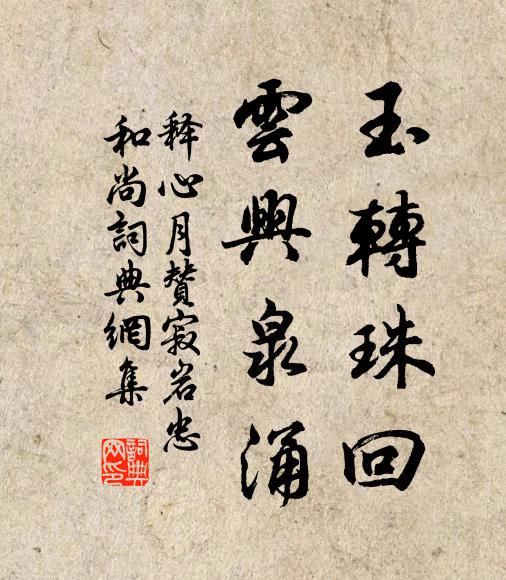 玉轉珠回
雲興泉涌
釋心月贊寂岩忠
和尚詞典網集
詞典网印